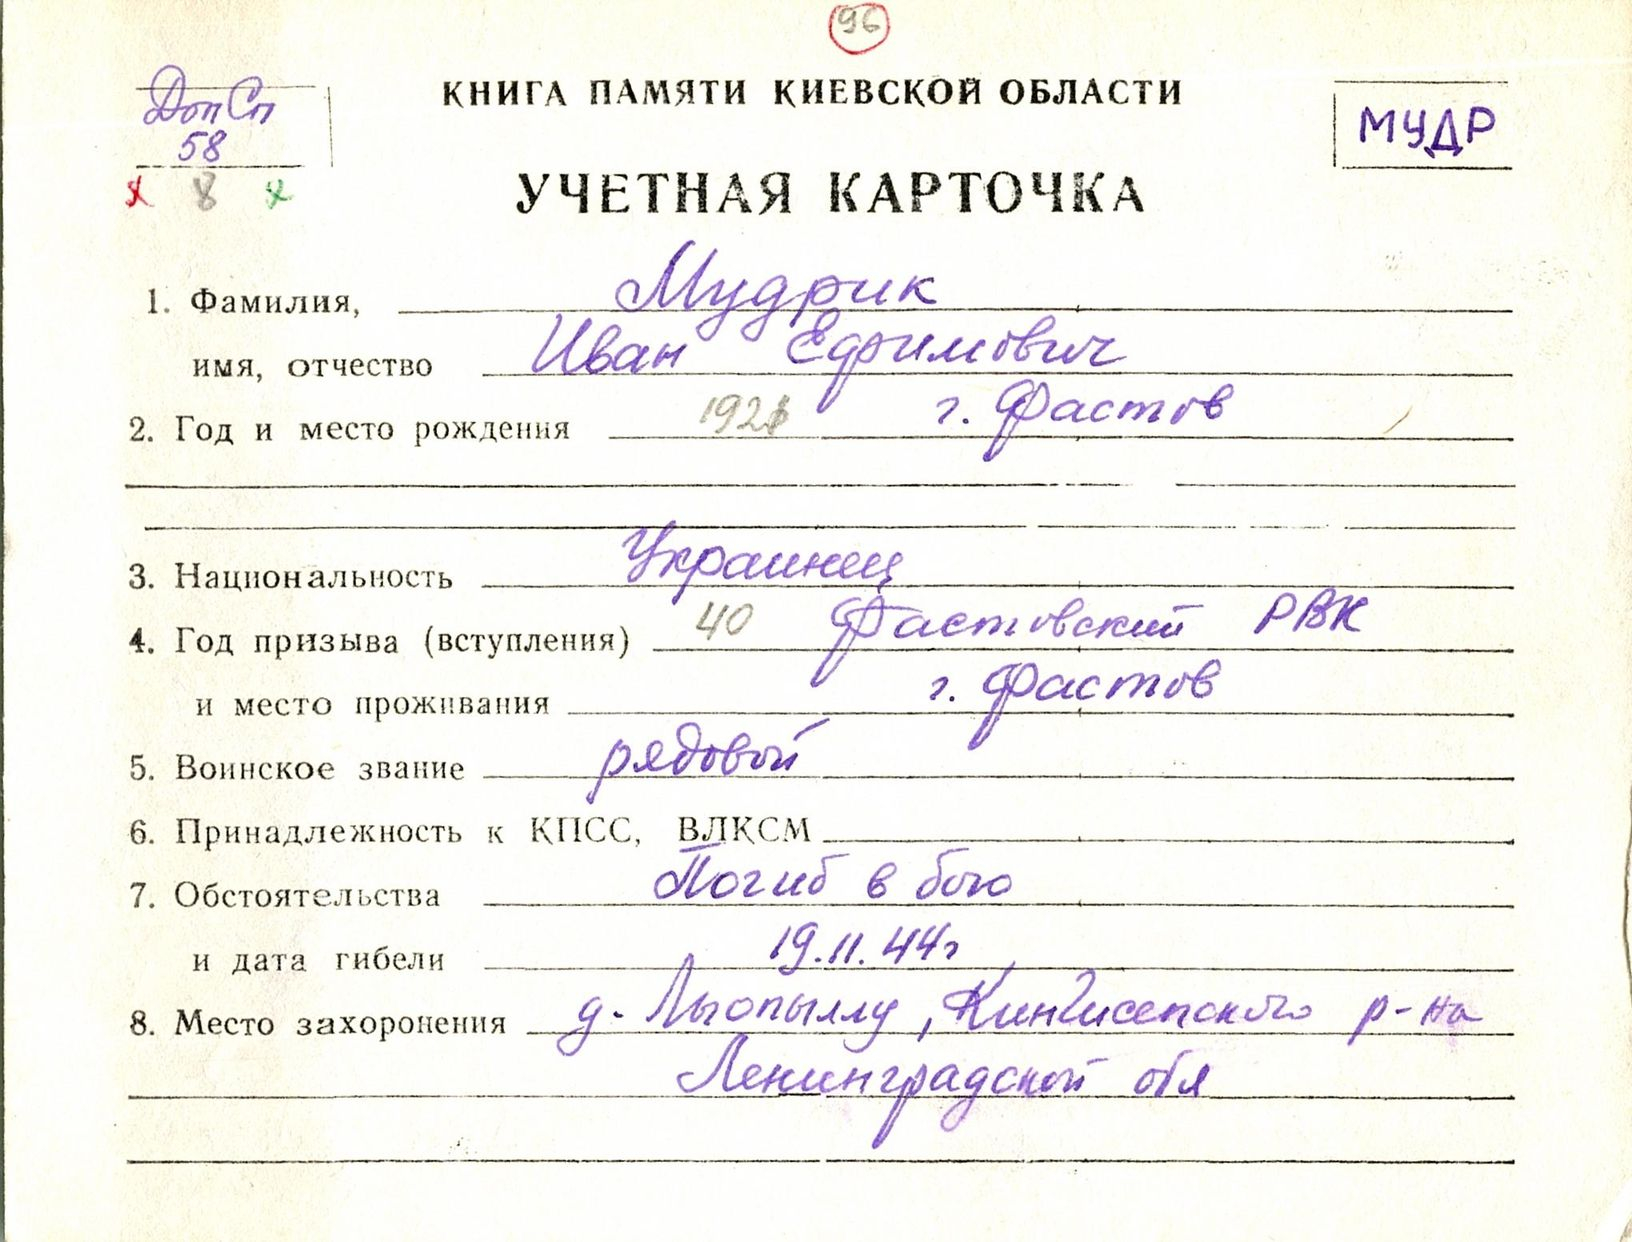 96
Доп Сп
58
КНИГА ПАМЯТИ КИЕВСКОЙ ОБЛАСТИ
МУДР
х 8 х
УЧЕТНАЯ КАРТОЧКА
1. Фамилия, Мудрик
имя, отчество Иван Ефимович
2. Год и место рождения 1921 г. Фастов
3. Национальность Украинец
4. Год призыва (вступления) 40 Фастовский РВК
и место проживания г. Фастов
5. Воинское звание рядовой
6. Принадлежность к КПСС, ВЛКСМ
7. Обстоятельства Погиб в бою
и дата гибели 19.11.44г
8. Место захоронения д. Лыопыллу, Кингисепского р-на
Ленинградской обл